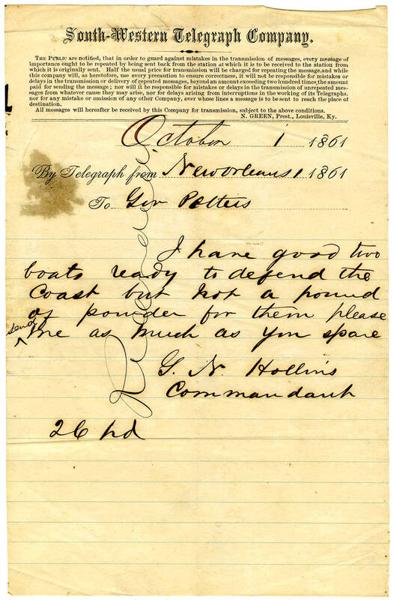 South-Western Telegraph Company.
THE PUBLIC are notified, that in order to guard against mistakes in the transmission of messages, every message of
importance ought to be repeated by being sent back from the station at which it is to be received to the station from
which it is originally sent. Half the usual price for transmission will be charged for repeating the message, and while
this company will, as heretofore, use every precaution to ensure correctness, it will not be responsible for mistakes or
delays in the transmission or delivery of repeated messages, beyond an amount exceeding two hundred times the amount
paid for sending the message; nor will it be responsible for mistakes or delays in the transmission of unrepeated mes-
sages from whatever cause they may arise, nor for delays arising from interruptions in the working of its Telegraphs,
nor for any mistake or omission of any other Company, over whose lines a message is to be sent to reach the place of
destination.
All messages will hereafter be received by this Company for transmission, subject to the above conditions.
N. GREEN, Prest., Louisville, Ky.
October 1 1861
By Telegraph from New Orleans 1 1861
To Gov Pettus
I have good two
boats ready to defend the
Coast but not a pound
of powder for them please
send me as much as you spare
G. N. Hollins
Commandant
26 pd